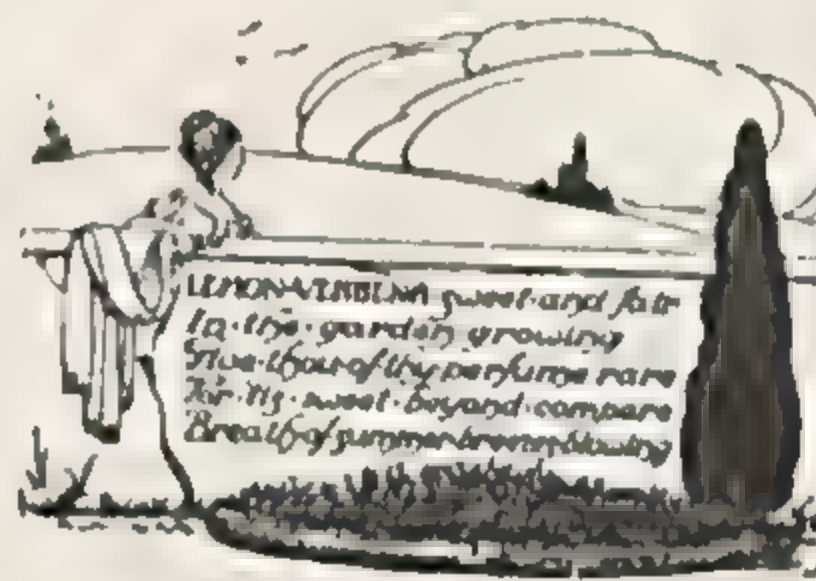 LEMON·VERBENA sweet·and fair
In·the·garden growing
Give·thou·of thy perfume rare
For·'tis·sweet·beyond·compare
Breath of summer blowing